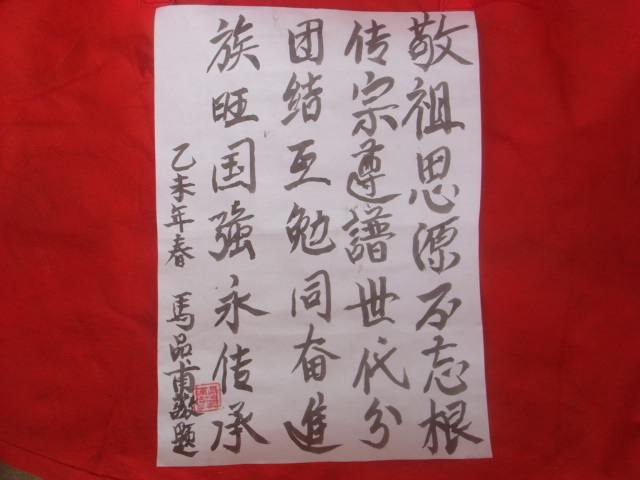 敬祖思源不忘根
传宗遵譜世代分
团结互勉同奋進
族旺国強永传承
乙未年春 馬品甫敬題